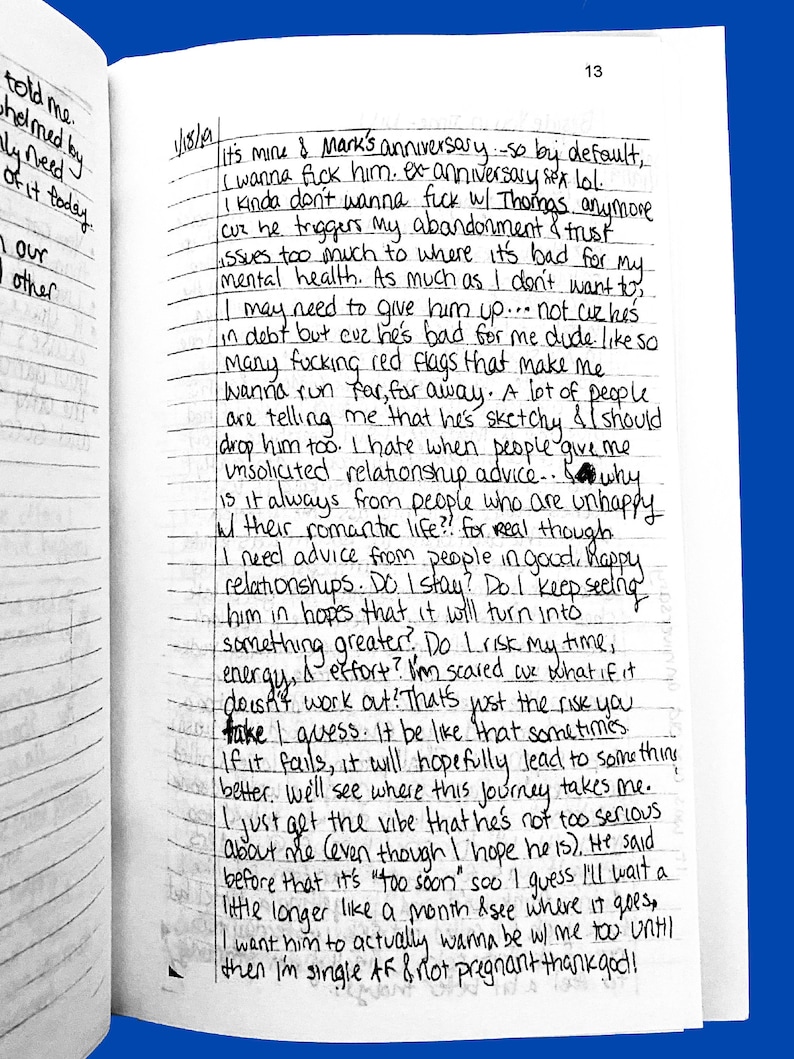 told me.
whelmed by
nly need
of it today.
n our
other
13
1/18/19
It's mine & Mark's anniversary - so by default,
I wanna fuck him. ex-anniversary sex lol.
I kinda don't wanna fuck w/ Thomas anymore
cuz he triggers my abandonment & trust
issues too much to where it's bad for my
mental health. As much as I don't want to,
I may need to give him up... not cuz he's
in debt but cuz he's bad for me dude. like so
many fucking red flags that make me
wanna run far, far away. A lot of people
are telling me that he's sketchy & I should
drop him too. I hate when people give me
unsolicited relationship advice.. & why
is it always from people who are unhappy
w/ their romantic life?? for real though
I need advice from people in good, happy
relationships. Do I stay? Do I keep seeing
him in hopes that it will turn into
something greater? Do I risk my time,
energy, & effort? I'm scared cuz what if it
doesn't work out? That's just the risk you
take I guess. It be like that sometimes.
If it fails, it will hopefully lead to something
better. We'll see where this journey takes me.
I just get the vibe that he's not too serious
about me (even though I hope he is). He said
before that it's "too soon" soo I guess I'll wait a
little longer like a month & see where it goes,
I want him to actually wanna be w/ me too until
then I'm single AF & not pregnant thank god!